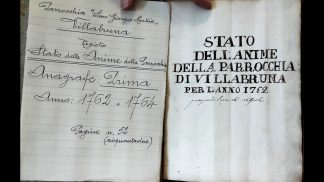 Parrocchia "San Giorgio Martire"
Villabruna
Registro
Stato delle Anime della Parrocchia
Anagrafe Prima
Anno: 1762 e 1764
Pagine n. 52
(cinquantadue)
STATO
DELL'ANIME
DELLA PARROCCHIA
DI VILLABRUNA
PER L'ANNO 1762